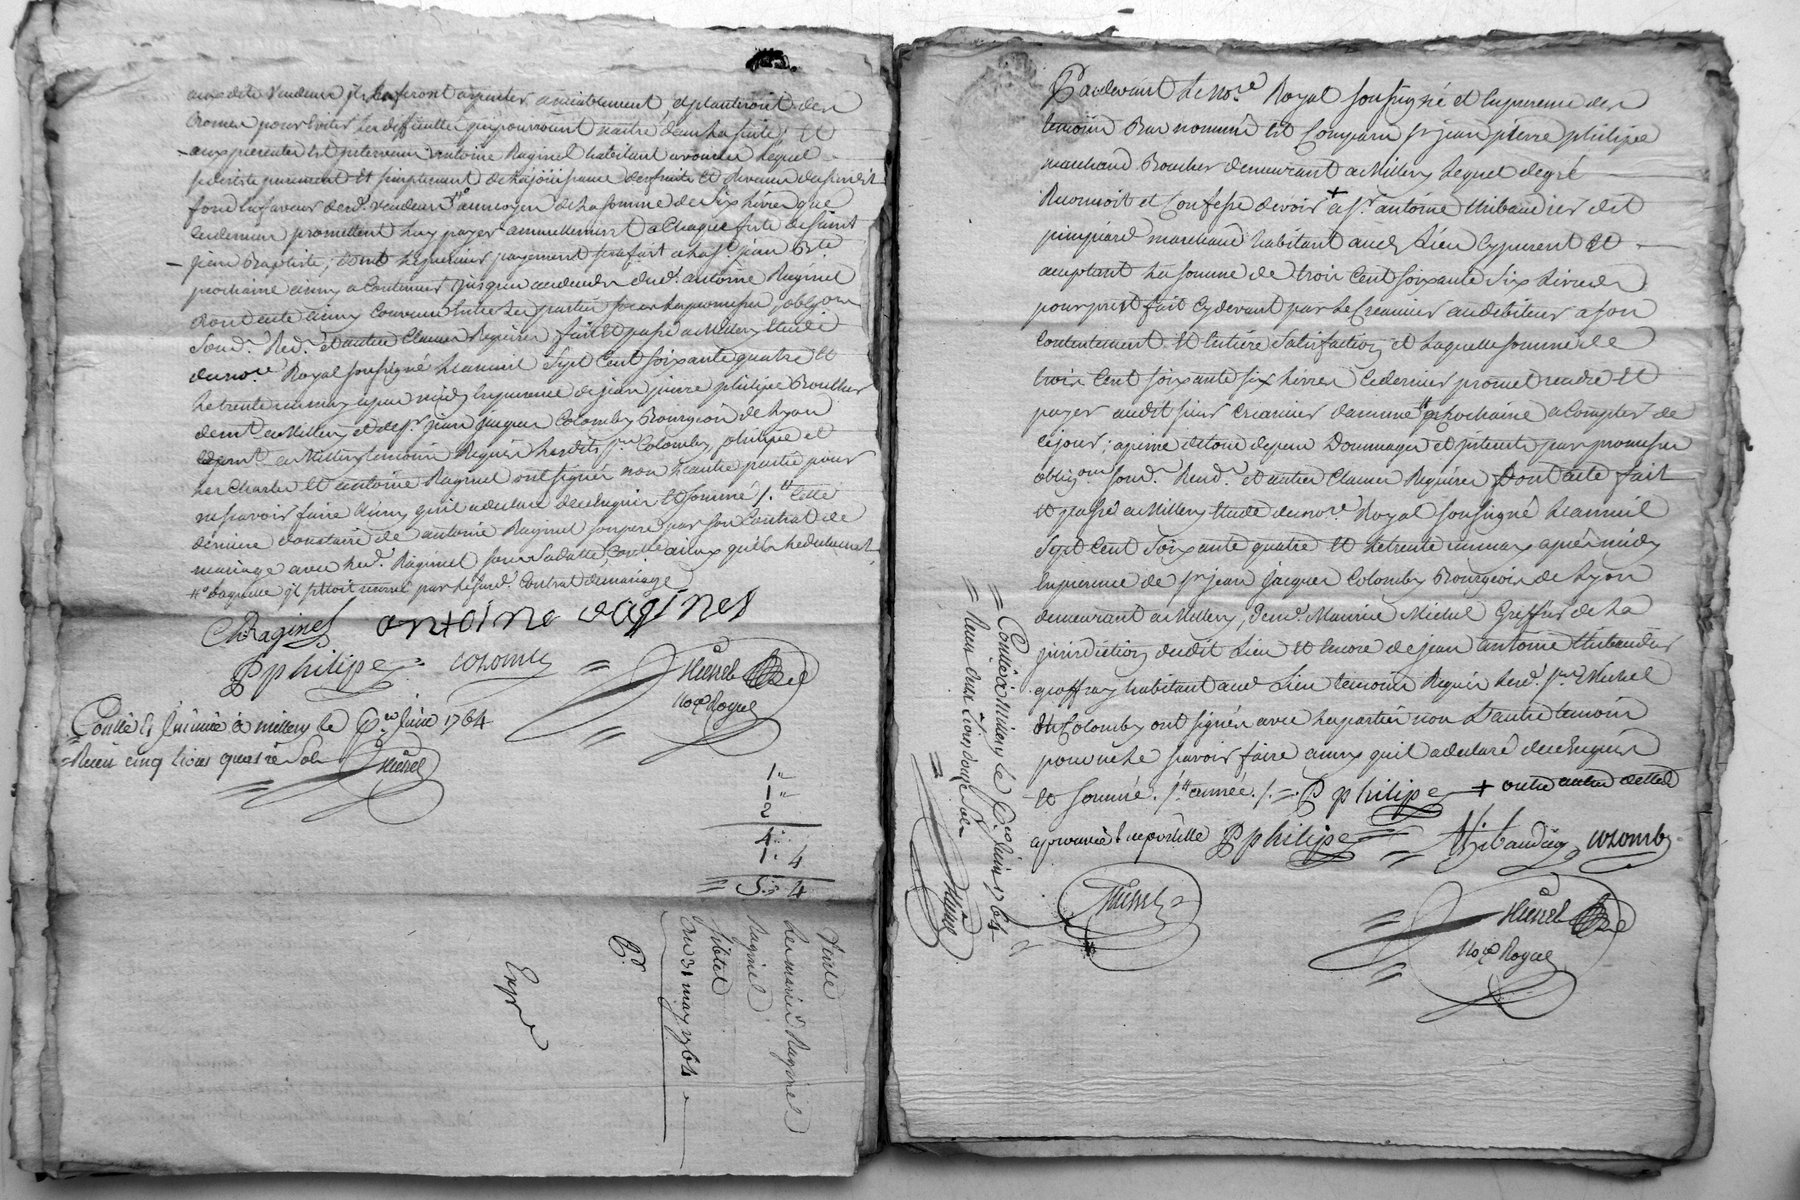 aux dits vendeurs ils feront arpenter amiablement et planteront des
bornes pour eviter les difficultés qui pourroient naitre dans la suite Et
aux presentes est intervenu antoine Raginel habitant a vourles lequel
se desiste purement Et simplement de la joüissance des fruits et revenus du susdit
fond en faveur des d. vendeurs au moyen de la somme de six livres que
ces derniers promettent luy payer annuellement a Chaque feste de saint
jean Baptiste, dont le premier payement sera fait a la st. jean Bte
prochaine ainsy a Continuer jusqu'au decedes dud. antoine Raginel
Dont acte ainsy Convenu Entre les parties sous les promesses, oblig.on
Soud. Red. et autres Clauses Requises fait Et passé a Millery Etude
du no.re Royal soussigné L'an mil Sept Cent soixante quatre Et
le trente un may apres midy En presence de jean pierre philipe Boucher
dem.t a Millery et de s.r jean jacques Colomby Bourgeois de Lyon
dem.t a Millery temoins Requis lesdits s.rs Colomby philipe et
les Charles Et antoine Raginel ont signés non L'autre partie pour
ne savoir faire ainsy qu'il a declaré de ce Enquis Et sommé /. Cette
derniere donataire de antoine Raginel son pere par son Contrat de
mariage avec led. Raginel
par le susd. Contrat de mariage
Ch Raginel antoine ragines
P philipe colomby
no.re Royal
Conllé & Insinué à millery le 6.e Juin 1764
Recu cinq livres quatre sols
1"
1"
2
4"
1. 4
5. 4
Vente
Les mariés Raginel
Raginel
Giblet
Du 31 may 1764
Exp.e
Pardevant Le No.re Royal soussigné et En presence des
temoins Bas nommés Est Comparu s.r jean pierre philipe
marchand Boucher demeurant a Millery Lequel de gré
Reconnoit et Confesse devoir + a s.r antoine thibaudier dit
marchand habitant aud. Lieu Cy present Et
acceptant La somme de trois Cent soixante Six Livres
pour prest fait Cy devant par Le Creancier au debiteur a son
Contentement Et Entiere Satisfaction, et Laquelle somme de
trois Cent soixante six livres Ce dernier promet rendre Et
payer audit sieur Creancier dans une année prochaine a Compter de
Cejour, a peine de tous depens Dommages et interets par promesses
oblig.on soud. Rend. Et autres Clauses Requises Dont acte fait
Et passé a Millery Etude du no.re Royal soussigné L'an mil
Sept Cent Soixante quatre Et le trente un may après midy
En presence de s.r jean jacques Colomby Bourgeois de Lyon
demeurant a Millery, de m.e Maurice Michel Greffier de La
jurisdiction dudit Lieu Et Encore de jean antoine thibaudier
geoffray habitant aud. Lieu temoins Requis Lesd. s.rs Michel
Et Colomby ont signés avec les parties non L'autre temoin
pour ne le savoir faire ainsy qu'il a declaré de ce Enquis
Et sommé. année /. P philipe + outre autre dette
approuvée L'apostille P philipe Thibaudier colomby
no.re Royal
Conllé à Millery le 6.e Juin 1764
Recu deux Livres douze sols